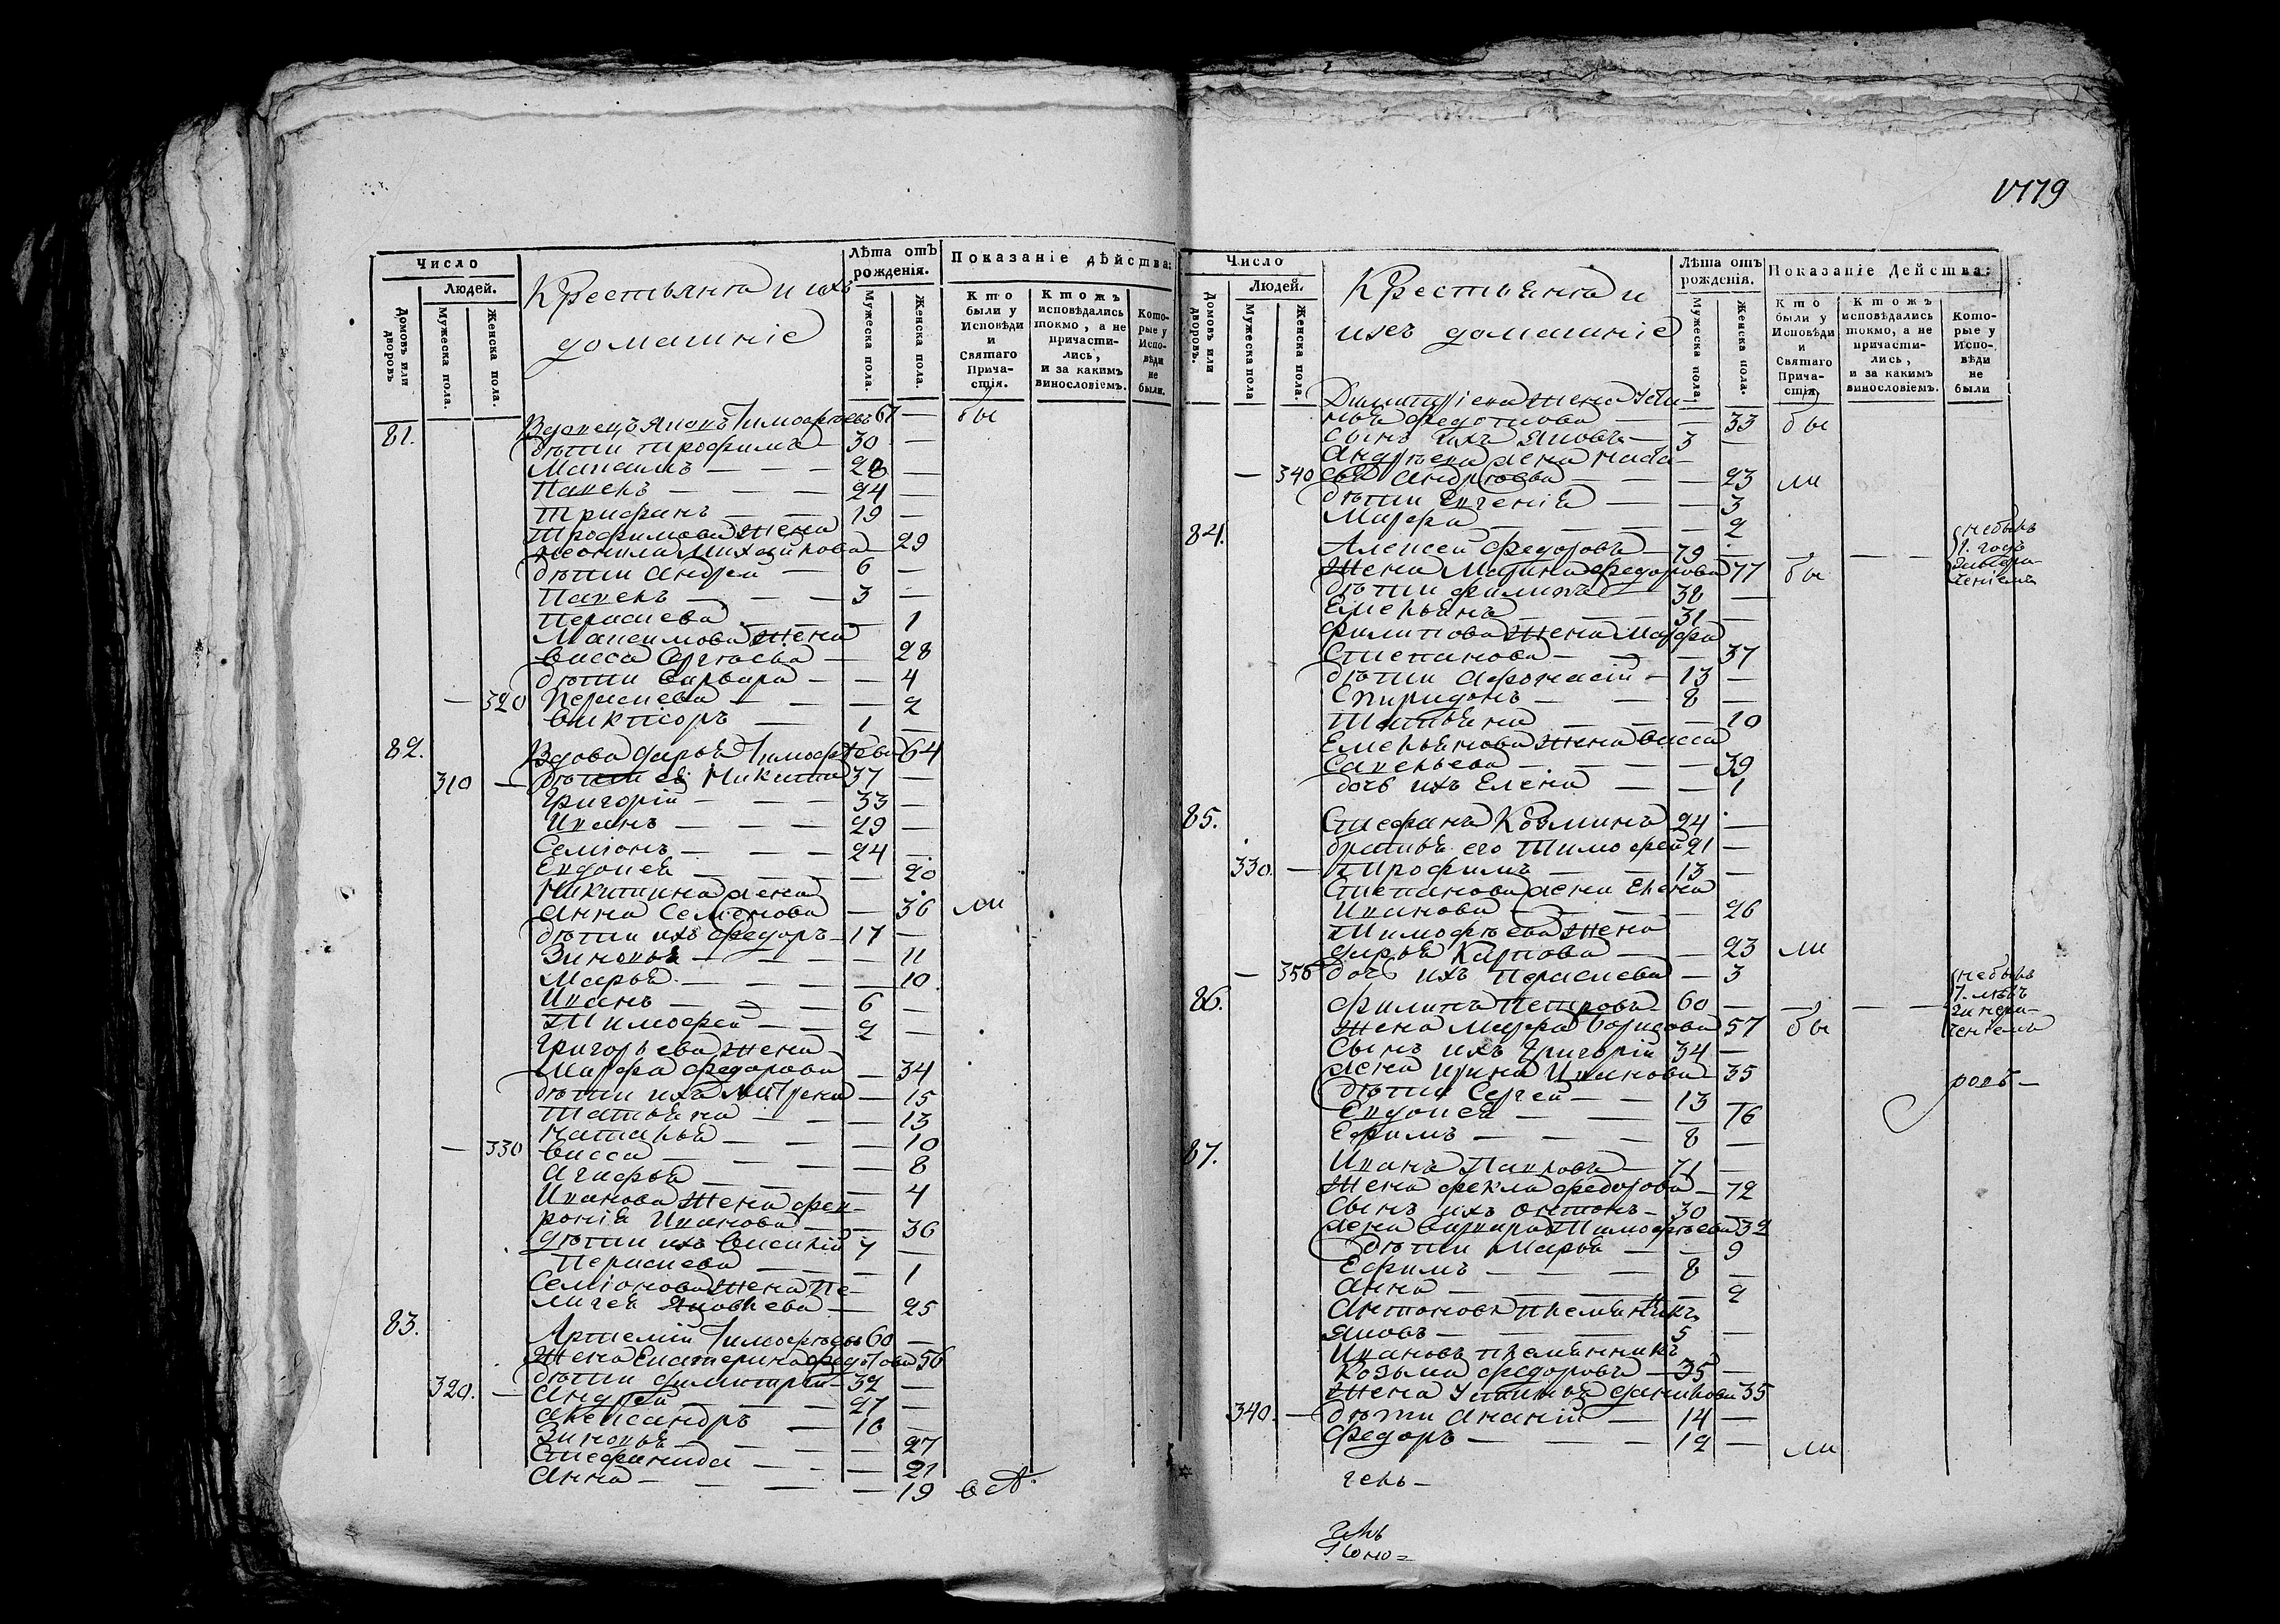 1779
Число
Людей.
Домовъ или дворовъ
Мужеска пола.
Женска пола.
Крестьяна и ихъ
домашніе
Лѣта отъ рожденія.
Мужеска пола.
Женска пола.
Показаніе дѣйства:
Кто были у Исповѣди и Святаго Причастія.
Ктожъ исповѣдались токмо, а не причастились, и за какимъ винословіемъ.
Которые у Исповѣди не были.
81. Вдовецъ Яковъ Тимофѣевъ 67 — бы
дѣти Трофимъ 30 —
Максимъ — — — 28 —
Павелъ — — — 24 —
Трифонъ — — 19 —
Трофимова жена
Неонила Михайлова — 29
дѣти Андрей — 6 —
Павелъ — — — 3 —
Парасцева — — 1
Максимова жена
Васса Сергѣева — 28
дѣти Варвара — — 4
— 320 Парасцева — — 2
Викторъ — 1 —
82. Вдова Дарья Тимофѣева 64
310 — дѣти ей Никита 37 —
Григорій — — — 33 —
Иванъ — — — 29 —
Семіонъ — — — 24 —
Евдокея — — — 20
Никитина жена
Анна Семенова — 36 ли
дѣти ихъ Федоръ — 17 —
Зиновья — — — 11
Марья — — — 10
Иванъ — — — 6 —
Тимофей — — 2 —
Григорьева жена
Марфа Федорова — 34
дѣти ихъ Матрена — 15
Татьяна — — — 13
Наталья — — — 10
— 330 Васса — — — 8
Агафья — — — 4
Иванова жена Фев-
ронія Иванова — — 36
дѣти ихъ Василій 7 —
Парасцева — — — 1
Семіонова жена Пе-
лагея Яковлева — 25
83. Артемій Тимофѣевъ 60 —
Жена Екатерина Федотова 56
дѣти Димитрій — 32 —
320. — Андрей — — — 27 —
Александръ — 16 —
Зиновья — — — 27
Стефанида — — — 21
Анна — — — 19 вА
Число
Людей.
Домовъ или дворовъ.
Мужеска пола
Женска пола.
Крестьяна и
ихъ домашніе
Лѣта отъ рожденія.
Мужеска пола.
Женска пола.
Показаніе Действа:
Кто были у Исповѣди и Святаго Причастія.
Ктожъ исповѣдались токмо, а не причастились, и за какимъ винословіемъ.
Которые у Исповѣди не были
Димитріева жена Усти-
нья Федотова — — 33 бы
сынъ ихъ Яковъ — 3 —
Андрѣева жена Ната-
— 340 Андрѣева — — — 23 ли
дѣти Евгенія — — 3
Марфа — — — 2
84. Алексей Федоровъ — 79 — — — небылъ 1. годъ
Жена Марина Федорова 77 бы
дѣти Филипъ — 38 —
Емельянъ — — 31 —
Филипова жена Марфа
Степанова — — — 37
дѣти Афонасій — 13 —
Спиридонъ — — 8 —
Татьяна — — — 10
Емельянова жена Васса
Савельева — — — 39
дочь ихъ Елена — — 1
85. Стефанъ Козминъ 24 —
братья его Тимофей 21 —
330. — Трофимъ — — 13 —
Степанова жена Елена
Иванова — — — 26
Тимофѣева жена
Дарья Карпова — — 23 ли
— 350 дочь ихъ Парасцева — 3
86. Филипъ Петровъ 60 — — — небылъ 7. лѣтъ
Жена Марфа Борисова 57 бы
сынъ ихъ Григорій 34 —
жена Ирина Иванова — 35
дѣти Сергей — — 13
Евдокея — — — 16
Ефимъ — — — 8 —
87. Иванъ Павловъ — 71 —
Жена Фекла Федорова — 72
сынъ ихъ Антонъ — 30 —
жена Варвара Тимофѣева 32
дѣти Марья — — 9
Ефимъ — — — 8 —
Анна — — — 2
Антоновъ племянникъ
Яковъ — — — 5 —
Ивановъ племянникъ
Козьма Федоровъ — 35 —
Жена Устинья Данилова 35
340. — дѣти Ананій — 14 —
Федоръ — — — 12 — ли